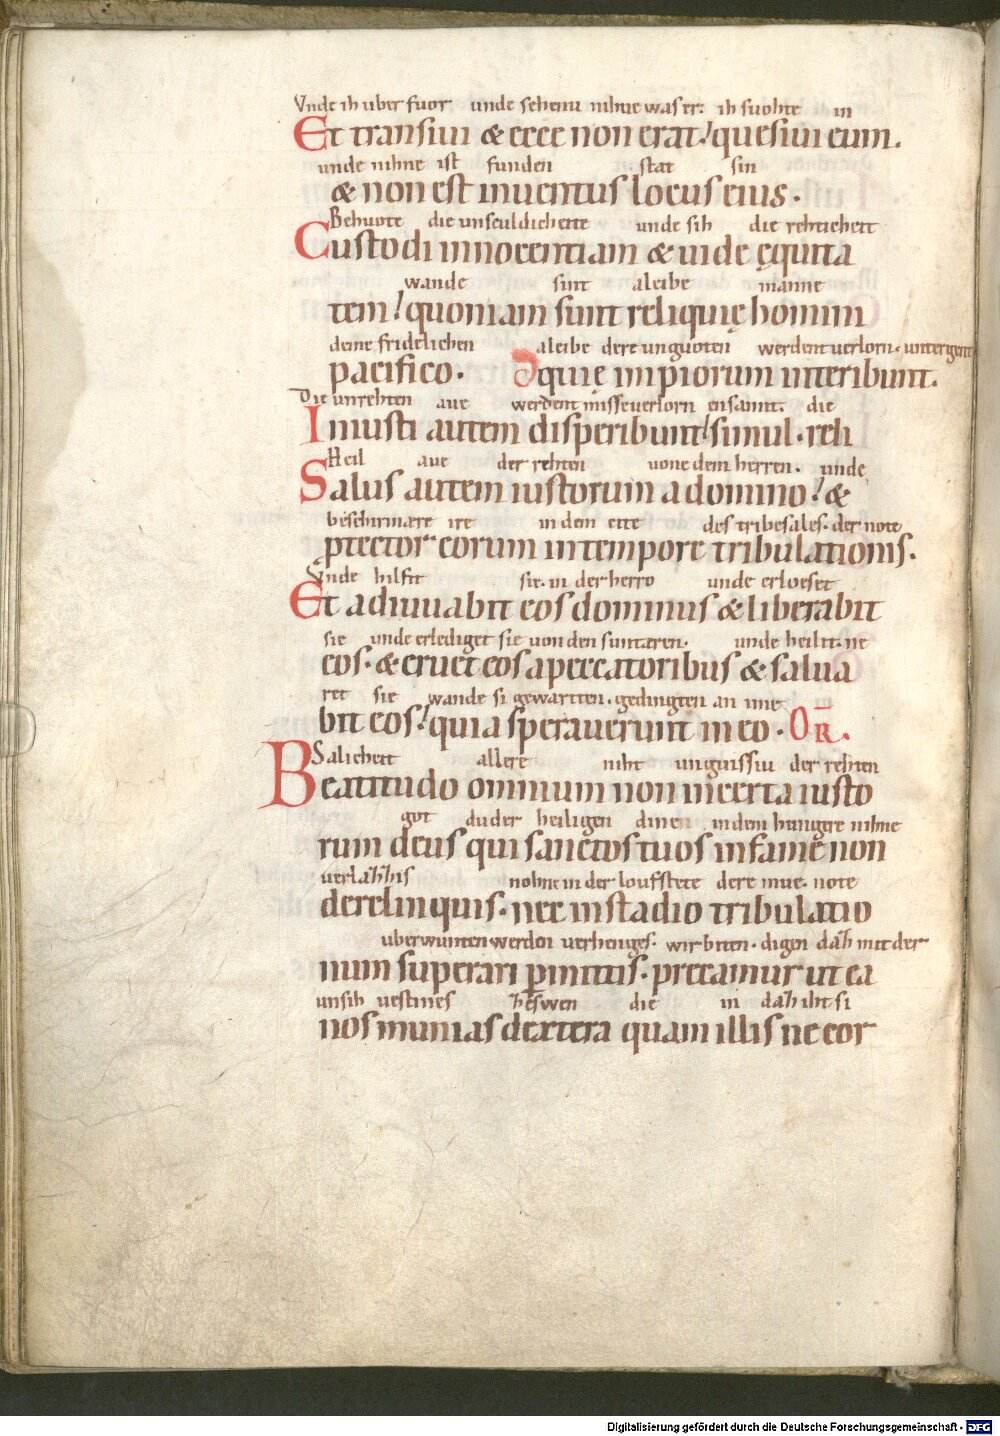 Vnde ih uber fuor unde sehenu nihne was er: ih suohte in
Et transiui & ecce non erat! quesiui eum.
unde nihne ist funden stat sin
& non est inuentus locus eius.
Behuote die unsculdicheite unde sih die rehticheit
Custodi innocentiam & uide ęquita
wande sint aleibe manne
tem! quoniam sunt reliquię homini
deine fridelichen aleibe dere unguoten werdent uerlorn. untergent
pacifico. quię impiorum interibunt.
Die unrehten aue werdent misseuerlorn ensamt. die
Iniusti autem disperibunt! simul. reli
Heil aue der rehten uone dem herren. unde
Salus autem iustorum a domino! &
beschirmære ire in dem cite des tribesales. der note
ptector eorum in tempore tribulationis.
Vnde hilfit sie. in der herro unde erloeset
Et adiuuabit eos dominus & liberabit
sie unde erlediget sie uon den suntæren. unde heilit. ne
eos. & eruet eos a peccatoribus & salua
ret sie wande si gewartten. gedingten an ime
bit eos! quia sperauerunt in eo. OR.
Salicheit allere niht unguissiu der rehten
Beatitudo omnium non incerta iusto
got du der heiligen dinen in dem hungere nihne
rum deus qui sanctos tuos in fame non
noh ne in der loufstete dere mue. note
derelinquis. nec in stadio tribulatio
uberwunten werden uerhenges. wir biten. digen dah mit der
num superari pmittis. precamur ut ea
unsih uestines die in dah iht si
nos munias dextera quam illis ne cor
Digitalisierung gefördert durch die Deutsche Forschungsgemeinschaft - DFG